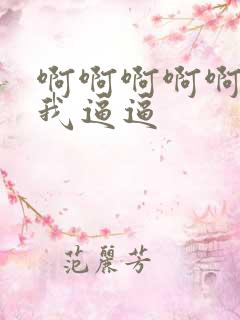 啊啊啊啊啊
我逼逼
范麗芳